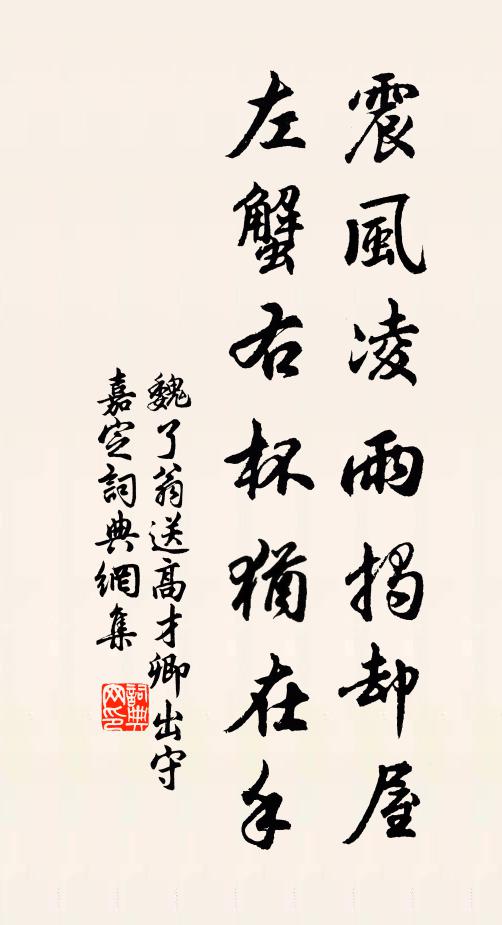 震風凌雨揭却屋
左蟹右杯猶在手
魏了翁送高才卿出守
嘉定詞典網集
詞典网印